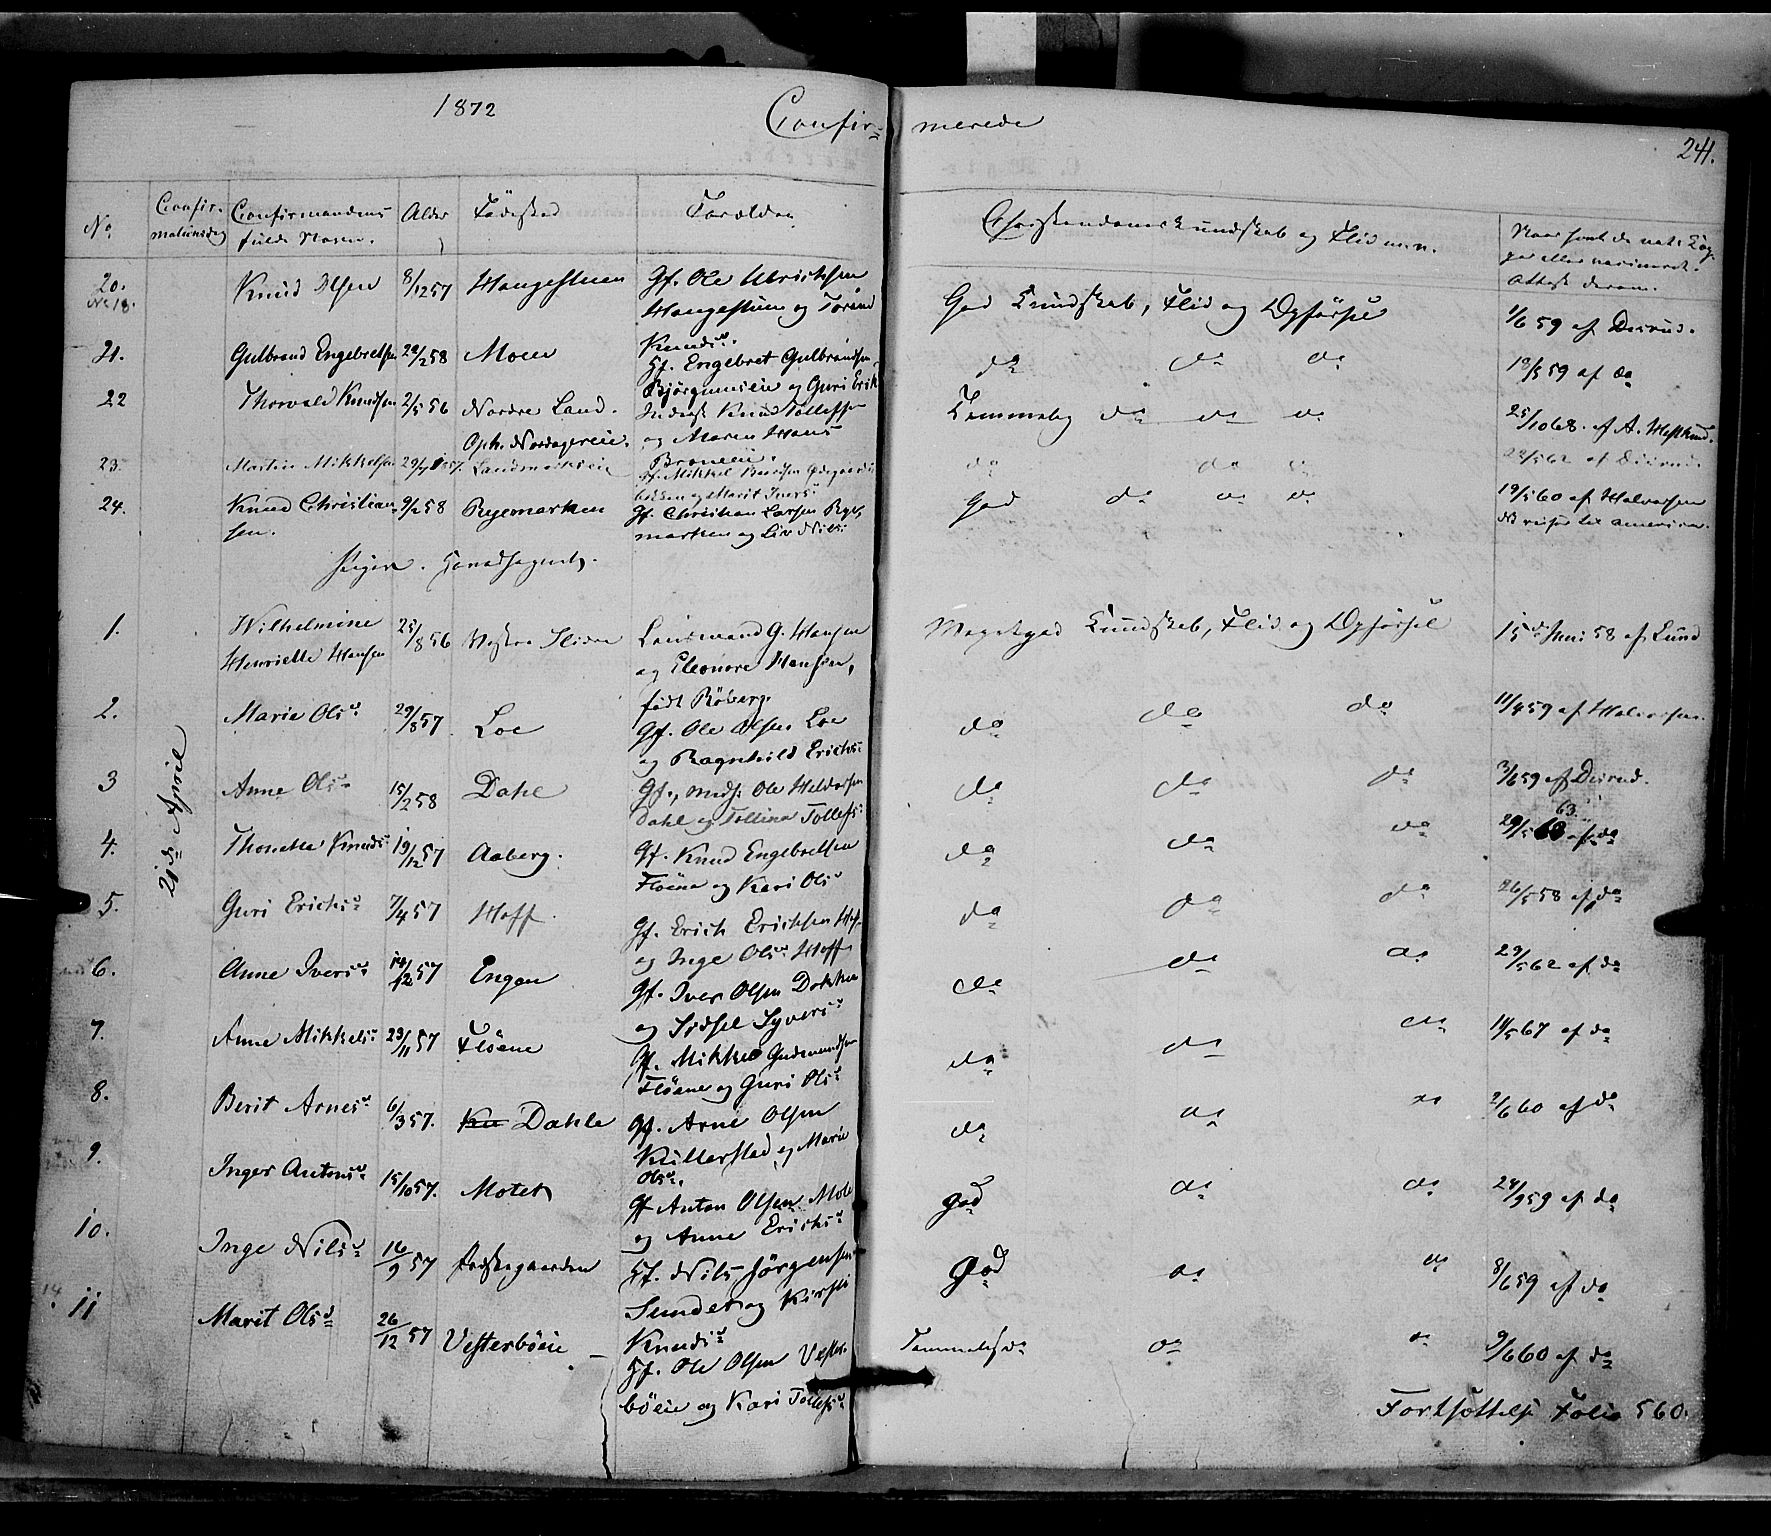 1872 Confir- merede 241.
No. Confir- Confirmandens Alder Fødested Forældre Christendoms Kundskab og Flid m.m. Naar havt de nat: Kop-
mationsdag fulde Navn. per eller vaccineret.
Attest derom.
20. Knud Olsen 8/12 57 Haugestuen Gf. Ole Ulrichsen God Kundskab, Flid og Opførsel 1/6 59 af Disrud.
No 18. Haugestuen og Torønd
Knudsd.
21. Gulbrand Engebretsen 28/2 58 Moen Gf. Engebret Gulbrandsen do do do 18/5 59 af do
Bjørgumseie og Guri Erik
22 Thorvald Knudsen 2/5 56 Nordre Land. Inderst Knud Tollefsen Temmelig do do do 25/10 68. af A. Mestlund.
Oph. Nordagereie. og Maren Hans
Broneie.
23. Martin Mikkelsen 29/7 57. Landmarkseie Gf. Mikkel Bendsen Ødegaards do do do 28/5 62 af Disrud.
bakken og Marit Ivers
24. Knud Christian- 9/2 58 Ryemarken Gf. Christian Larsen Rye- God do do do 19/5 60 af Halvorsen
sen. marken og Liv Nils NB reiser til Amerika.
Piger. Hovedsognet.
1. Wilhelmine 25/8 56 Vestre Slidre Lensmand G. Hansen Megetgod Kundskab, Flid og Opførsel 15de Juni 58 af Lund
Henriette Hansen og Eleonore Hansen,
født Röberg.
21de April
2. Marie Olsd 29/8 57 Loe Gf. Ole Olsen Loe do do do 11/4 59 af Halvorsen.
og Ragnhild Erichs
3 Anne Olsd 15/2 58 Dahl Gf., Ole Haldorsen do do do 3/6 59 af Disrud.
Dahl og Tollina Tollefs
63.
4. Thonetta Knuds 19/12 57 Aaberg. Gf. Knud Engebretsen do do do 29/5 63 af do
Fløene og Kari Ols
5. Guri Erichsd 7/4 57 Hoff. Gf. Erich Erichsen Hof do do do 26/5 58 af do
og Inge Olsd Hoff
6. Anne Iversd 14/12 57 Engen Gf. Iver Olsen Dokken do do do 29/5 62 af do
og Sidsel Syversd
7. Anne Mikkelsd 23/11 57 Fløene Gf. Mikkel Gudmundsen do do do 14/5 67 af do
Fløene og Guri Olsd
8. Berit Arnesd 6/3 57. Dahle Gf. Arne Olsen do do do 2/6 60 af do
Killerstad og Marie
Olsd.
9. Inger Antonsd 15/10 57. Motet Gf Anton Olsen Mote god do do 24/9 59 af do
og Anne Erichsd
10. Inge Nilsd 16/9 57 Præstegaarden Gf. Nils Jørgensen God do do 8/6 59 af do
Sundet og Kirsti
Knudsd
11 Marit Olsd 26/12 57 Vesterbøeie Gf. Ole Olsen Vester- Temmeligdo do do 9/6 60 af do
bøeie og Kari Tollefsd
Fortsættelse Folio 560.